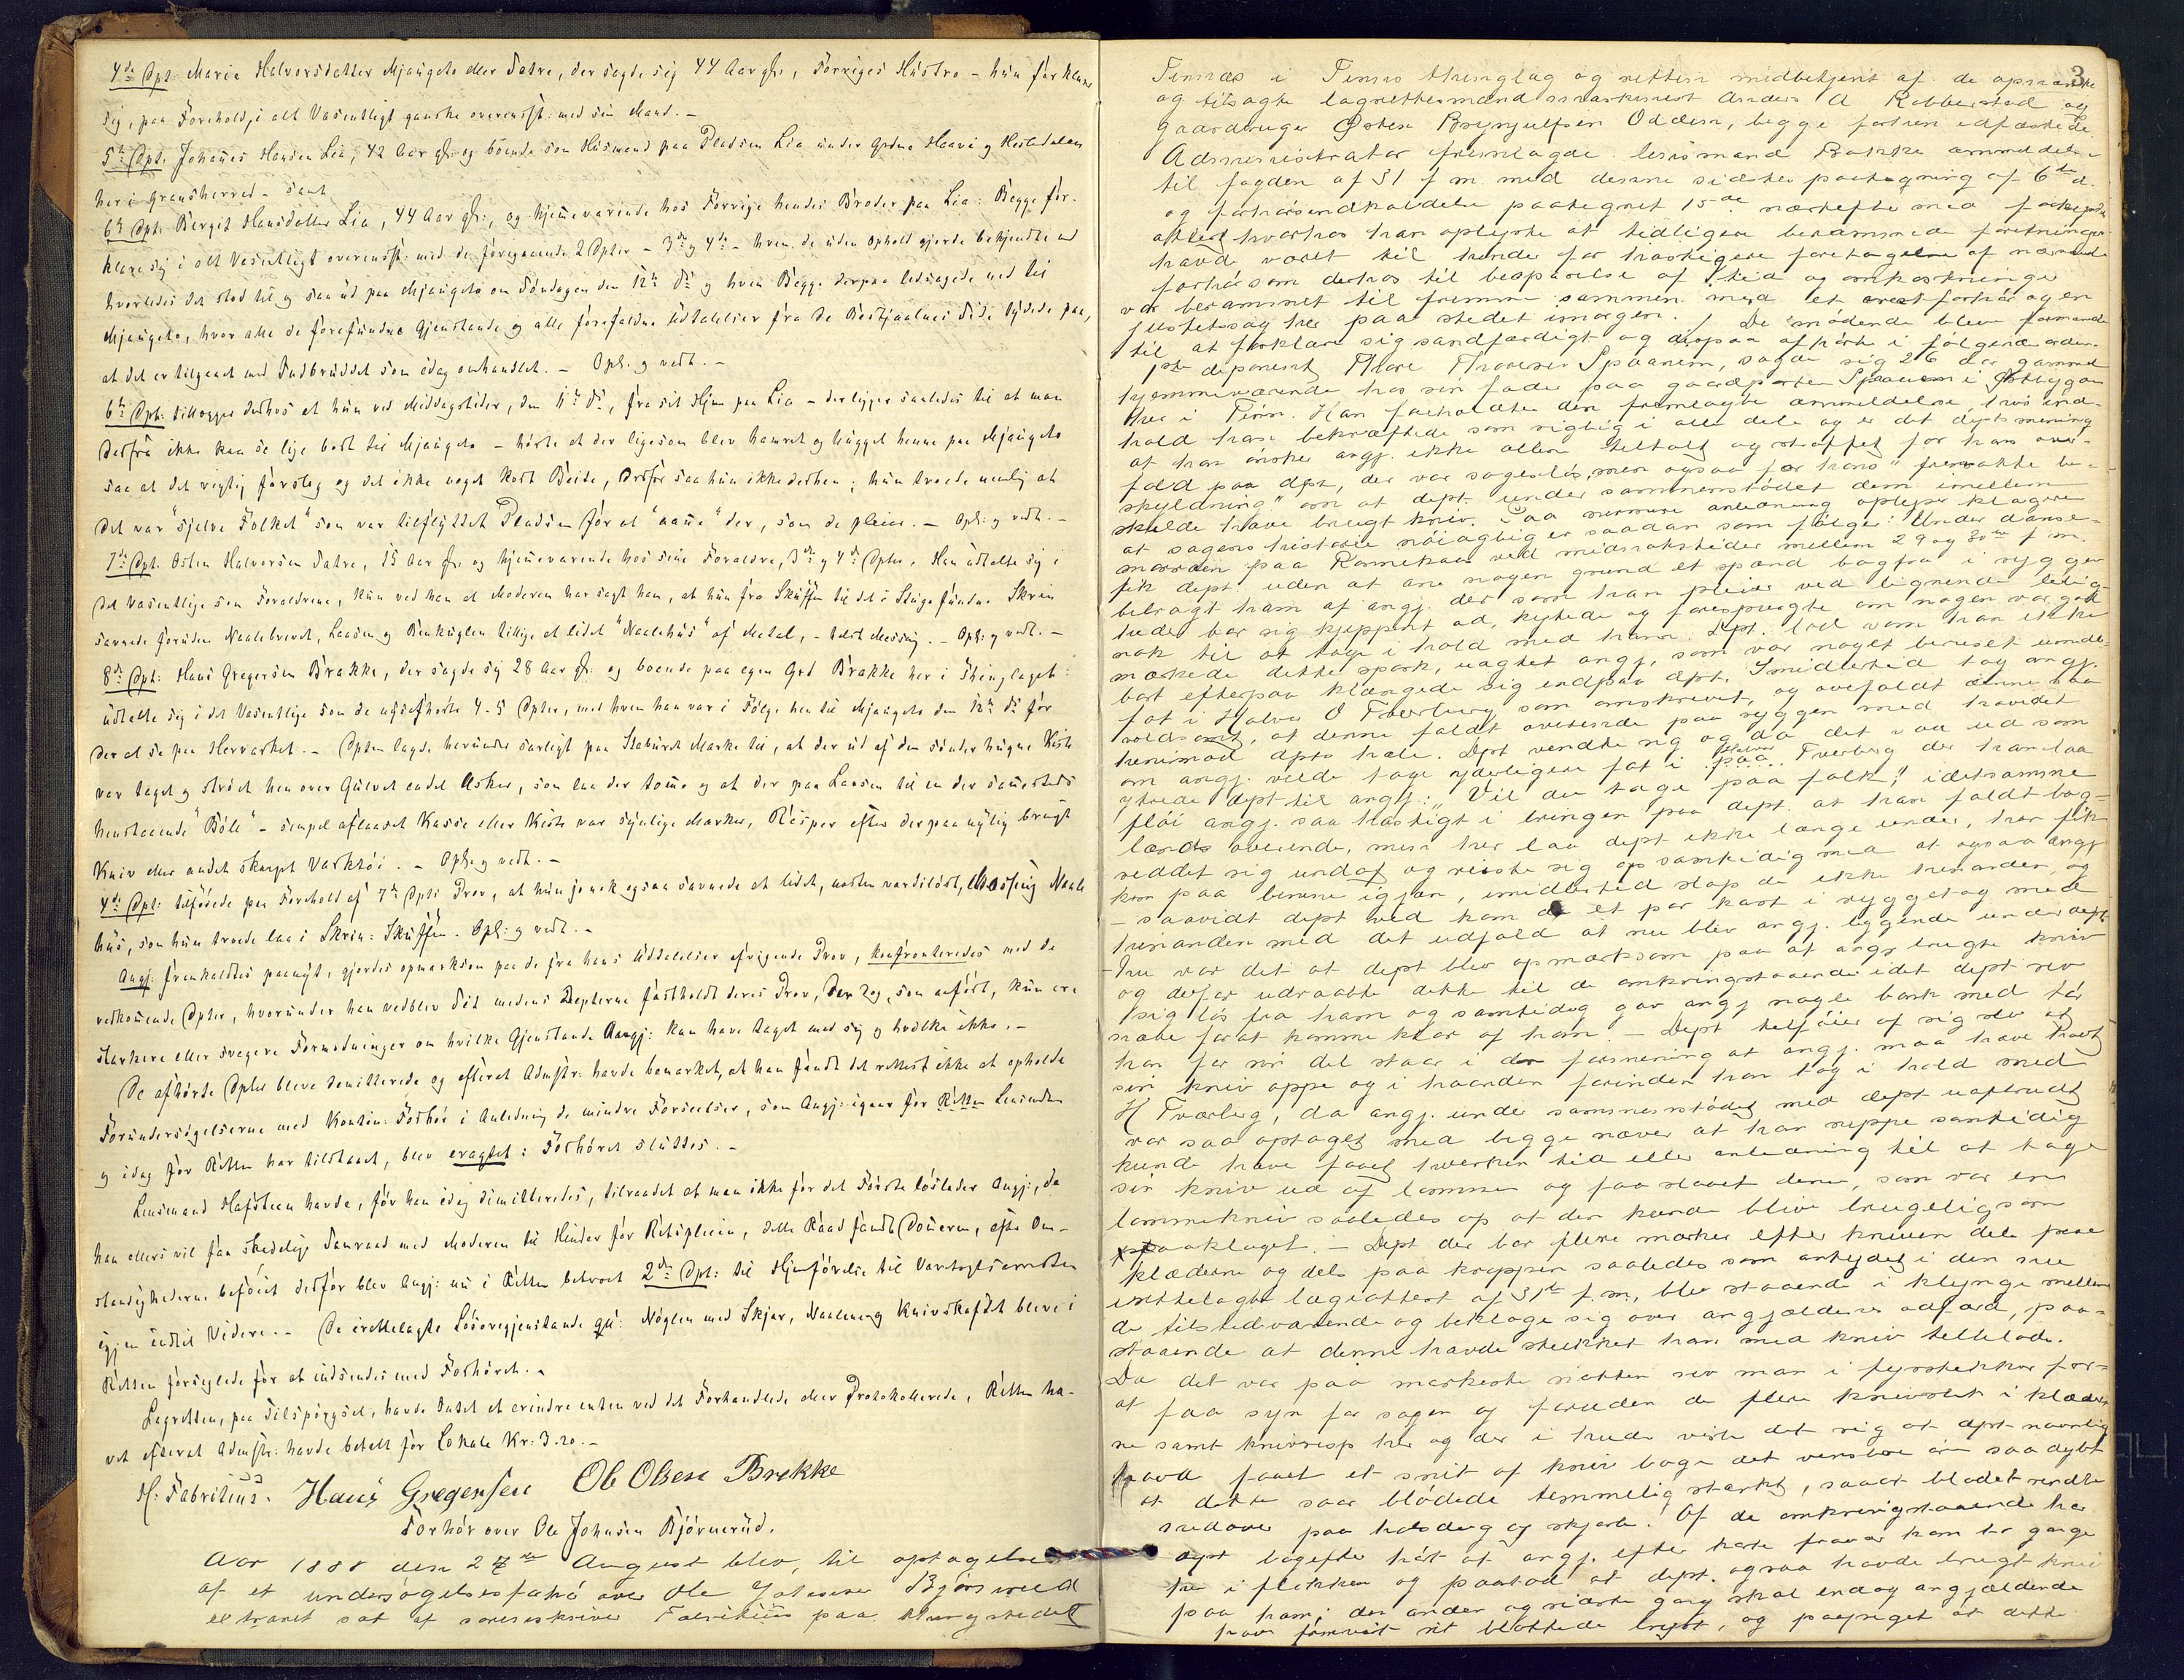 4de Dpt: Maria Halvorsdatter Mjaugeto eller Satre, der sagde sig 44 Aar gl:, Forriges Hustro - hun forklarer
sig, paa Forehold, i alt Væsentligt ganske overensst: med sin Mand. -
5te Dpt: Johanes Hansen Lia, 42 Aar gl: og boende som Husmand paa Pladsen Lia under Grdne Haavi og
her i Gransherred - samt
6te Dpt: Bergit Hansdatter Lia, 44 Aar gl:, og hjemeværende hos Forrige hendes Broder paa Lia: Begge for-
klare sig i alt Væsentligt overensst: med de foregaaende 2 Dpter - 3de og 4de - hvem de uden Ophold gjorde bekjendte med
hvorledes det stod til og saa ud paa Mjaugeto om Søndagen den 12te ds og hvem Begge derpaa ledsagede ned til
Mjaugeto, hvor alle de forefundne Gjenstande og alle forefaldne Udtalelser fra de Bestjaalnes Side tydede paa,
at det er tilgaaet med Indbruddet som idag omhandlet. - Opl: og vedt. -
6te Dpt: tillægger derhos at hun ved Middagstider, den 11te ds, fra sit Hjem paa Lia - der ligger saaledes til at man
derfra ikke kan se lige bort til Mjaugeto - hørte at der ligesom blev hamret og hugget henne paa Mjaugeto
saa at det rigtig forslog og det ikke noget kort Beite, derfor saa hun ikke derhen; hun troede nemlig at
det var "sjelve Folket" som var tilflyttet Pladsen for at "aane" der, som de pleier. - Opl: og vedt. -
7de Dpt. Østen Halvorsen Satre, 15 Aar gl: og hjemeværende hos sine Foraldre, 3de og 4de Dpter. Han udtalte sig i
det væsentlige som Foraldrene, kun ved han at Moderen har sagt ham, at hun fra Skuffen til det i Stuge fundne Skrin
savnede foruden Naalebrevet, Laasen og Benkuglen tillige et lidet "Naalehus" af Metal, - helst Messing. - Opl: og vedt. -
8de Dpt: Hans Gregersen Brække, der sagde sig 28 Aar gl: og boende paa egen Grd Brække her i Thinglaget:
udtalte sig i det Væsentlige som de nysafhørte 4-5 Dpter, med hvem han var i Følge hen til Mjaugeto den 12te ds for
der at se paa Herværket. - Dpten lagde herunder særligt paa Staburet Mærke til, at der ud af den sønderhugne Kiste
var taget og strøet hen over Gulvet endel Asker, som laa der tome og at der paa Laasen til en der samesteds
henstaaende "Bøle" - simpel aflaaset Kasse eller Kiste var synlige Mærker, Risper efter derpaa nylig brugt
Kniv eller andet skarpt Værktøi. - Opl: og vedt. -
4de Dpt: tilføiede paa Forehold af 7de Dpts Prov, at hun jo nok ogsaa savnede et lidet, næsten værdiløst, Messing Naale
hus, som hun troede laa i Skrin: Skuffen. Opl: og vedt. -
Angj: fremkaldtes paanyt, gjordes opmærksom paa de fra hans Udtalelser afvigende Prov, konfronteredes med de
vedkomende Dpter, hvorunder han vedblev Sit medens Depterne fastholdt deres Prov, der jo, som anført, kun ere
stærkere eller svagere Formodninger om hvilke Gjenstande Angj: kan have taget med sig og hvilke ikke. -
De afhørte Dpter bleve demitterede og efterat Admstr: havde bemærket, at han fandt det rettest ikke at opholde
Forundersøgelserne med Kontin: Forhør i Anledning de mindre Forseelser, som Angj: igaar for Retten Lensmden
og idag for Retten har tilstaaet, blev eragtet: Forhøret sluttes. -
Lensmand Hafsteen havde, før han idag dimitteredes, tilraadet at man ikke for det Første løslader Angj:, da
han ellers vil faa skadelig Samraad med Moderen til Hinder for Retspleien, dette Raad fandt Domeren, efter Om-
stændighederne beføiet derfor blev Angj: nu i Retten betroet 2den Dpt: til Hjemførelse til Varetægtsarresten
igjen indtil Videre. - De irettelagte Løsøregjenstande: Nøglen med Skjær, Naalene og Knivskaftet bleve i
Retten forseglede for at indsendes med Forhøret. -
Lagretten, paa Tilspørgsel, havde Intet at erindre enten ved det Forhandlede eller Protokollerede, Retten ha-
vet efterat Admstr: havde betalt for Lokale Kr: 3.20. -
H. Fabritius. Hans Gregersen Ole Olsen Brekke
Forhør over Ole Johnsen Bjørnerud.
Aar 1888 den 27de August blev, til optagelse
af et undersøgelsesforhør over Ole Johnsen Bjørnerud
extraret sat af sorenskriver Fabritius paa thingstedet
3
i Tinns thinglag og retten medbetjent af de opnævnte
og tilsagte lagrettesmænd Anders A Robberstad og
gaardbruger Østen Brynjulfsen Oddern, begge forhen edfæstede
Administrator fremlagde lensmand Bakke anmeldelse
til fogden af 31 f.m. med dennes sidste paategning af 6te d.
og forhørsindkaldelse paategnet 15de næstefter med forkyndt
attest hvorhos han oplyste at tidligere berammede forretninger
havde været til hinder for hastigere foretagelse af nærværende
forhør som derhos til besparelse af tid og omkostninger
var berammet til fremme sammen med et arrestforhør og en
justitssag her paa stedet imorgen. / De mødende blev formanede
til at forklare sig sandfærdigt og derpaa afhørte i følgende orden.
1ste deponent Thore Thoresen Spaanem, sagde sig 26 aar gammel
hjemmeværende hos sin fader paa gaardparten Spaanem i Østbygden
her i Tinn. Han foreholdtes den fremlagte anmeldelse hvis ind-
hold han bekræftede som rigtig i alle dele og er det dpts mening
at han ønsker angj. ikke allene tiltalt og straffet for hans over-
fald paa dpt, der var sagesløs, men ogsaa for hans fremsatte be-
skyldning om at dept. under sammenstødet dem imellem
skulde have brugt kniv. Paa nærmere anledning oplyser klageren
at sagens historie nøiagtig er saadan som følger: Under danse-
moroen paa Rannekaas ved midnatstider mellem 29 og 30te f.m.
fik dept uden at ane nogen grund et spænd bagfra i ryggen
bibragt ham af angj. der som han pleier ved lignende leilig-
heder bar sig kjepphøit ad, kytede og forespurgte om nogen var god
nok til at tage i hold med ham. Dpt. lod som han ikke
mærkede dette spark, uagtet angj, som var noget beruset umid-
bart efterpaa klængede sig indpaa dpt. Imidlertid tog angj.
fat i Halvor O Tverberg som omskrevet, og overfaldt denne saa
voldsomt, at denne faldt overende paa ryggen med hovedet
henimod dpts hæle. Dept vendte sig og da det saa ud som
om angj. vilde tage yderligere fat i Halvor Tverberg der han laa
ytrede dept til angj: "Vil du tage paa folk!" idetsamme
fløi angj. saa hastigt i bringen paa dept. at han faldt bag-
lænds overende, men her laa dept ikke længe under, han fik
reddet sig undaf og reiste sig op samtidig med at ogsaa angj
kom paa benene igjen, imidlertid slap de ikke hinanden, og
- saavidt dept ved kom de et par kast i rygget og med
hinanden med det udfald at nu blev angj. liggende under dept
- Nu var det at dept blev opmærksom paa at angj brugte kniv
og derfor udraabte dette til de omkringstaaende idet dept rev
sig løs fra ham og samtidig gav angj nogle bank med tør
næve for at komme klar af ham. - Dept tilføier af sig selv at
han for sin del staar i den formening at angj. maa have havt
sin kniv oppe og i haanden forinden han tog i hold med
H Tværberg, da angj. under sammenstødet med dept uafbrudt
var saa optaget med begge næver at han neppe samtidig
kunde have faaet hverken tid eller anledning til at tage
sin kniv ud af lommen og faa slaaet denne, som var en
lommekniv saaledes op at den kunde blive brugelig som
paaklaget. - Dept der bar flere mærker efter kniven dels paa
klæderne og dels paa kroppen saaledes som antydet i den nu
irettelagte lægeattest af 31te f.m, blev staaende i klynge mellem
de tilstedeværende og beklage sig over angjældenes adfærd, paa-
staaende at denne havde stukket ham med kniv tilblods.
Da det var paa mørkeste natten rev man i fyrstikker for
at faa syn for sagen og foruden de flere knivstik i klæder-
ne samt knivrisp her og der i hude viste det sig at dpt navnlig
havde faaet et snit af kniv bage det venstre øre saa dybt
at dette saar blødede temmelig stærkt, saaat blodet rendte
nedover paa halsdug og skjorte. Af de omkringstaaende har
dept bagefter hørt at angj. efter korte fravær kom to gange
hen i flokken og paastod at dept. ogsaa havde brugt kniv
paa ham; den anden og sidste gang skal endog angjældende
have fremvist sit blottede bryst, og paapeget at dette